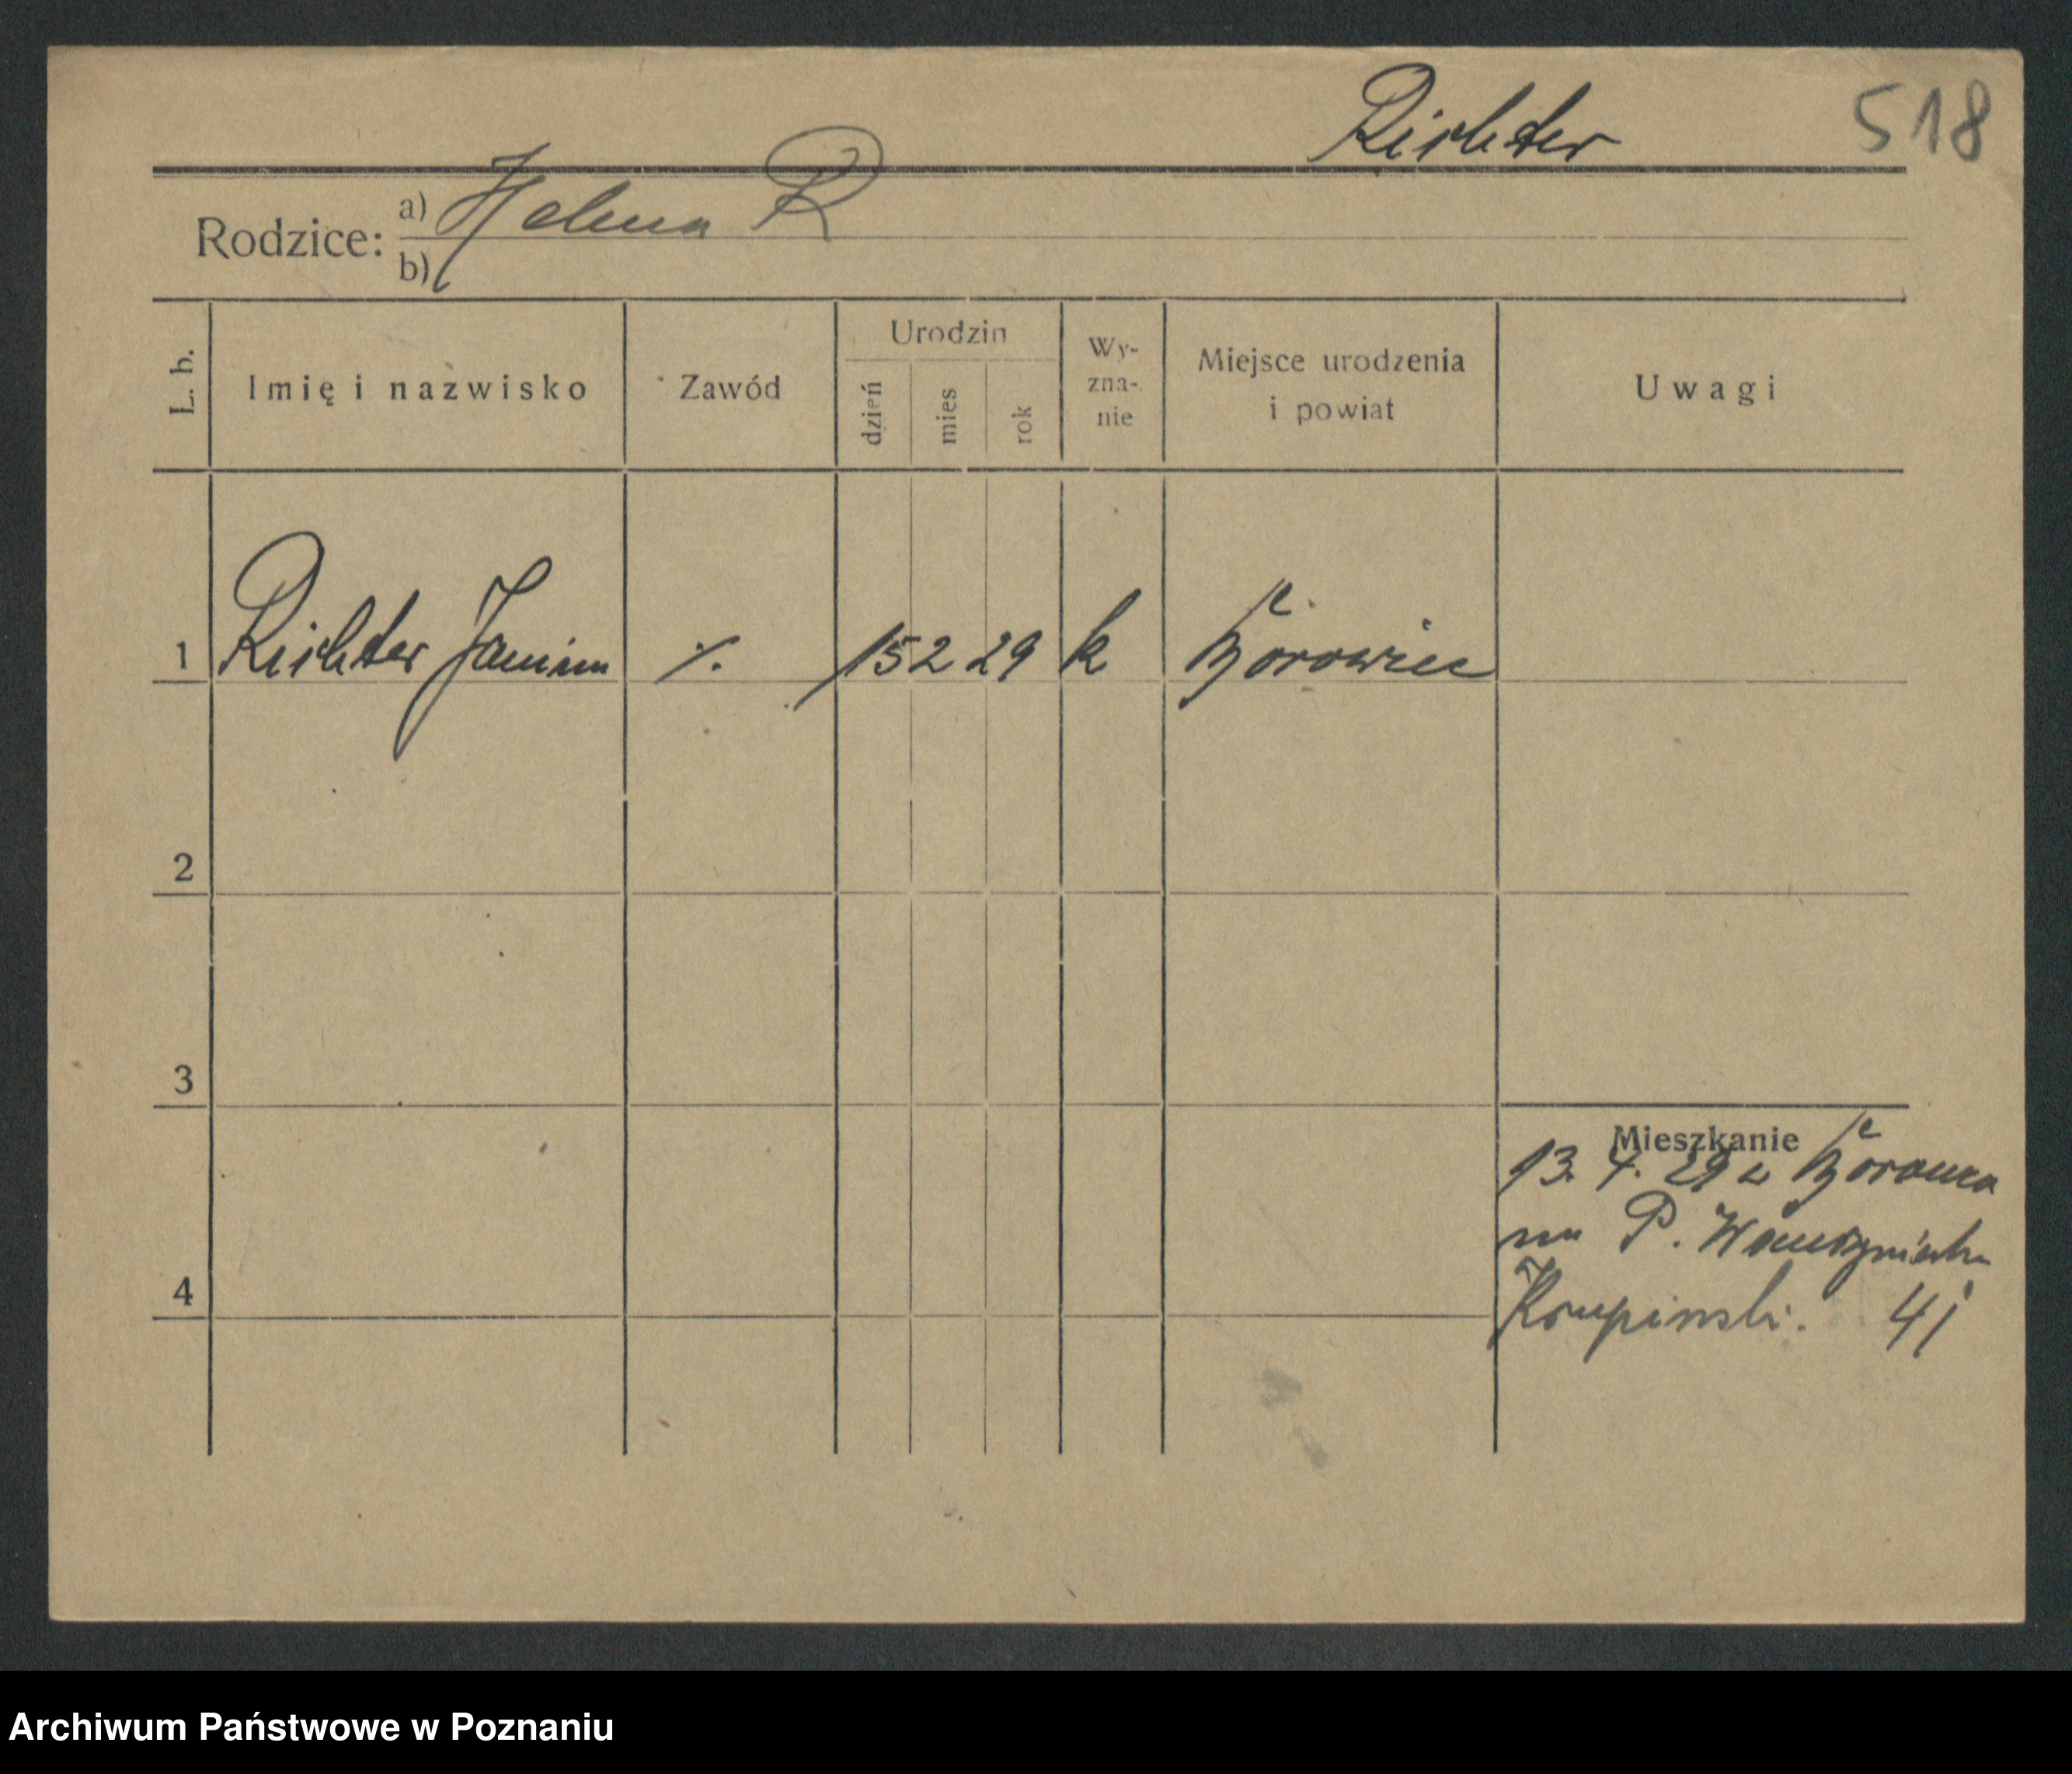 Richter 518
Rodzice: a) Helena R
b)
L. b. Imię i nazwisko Zawód Urodzin dzień mies rok Wy-zna-nie Miejsce urodzenia i powiat Uwagi
1 Richter Janina ./. 15 2 29 k Borowiec
2
3
4
Mieszkanie
13. 4. 29 z Borowca
na P.
Krupinski. 41
Archiwum Państwowe w Poznaniu